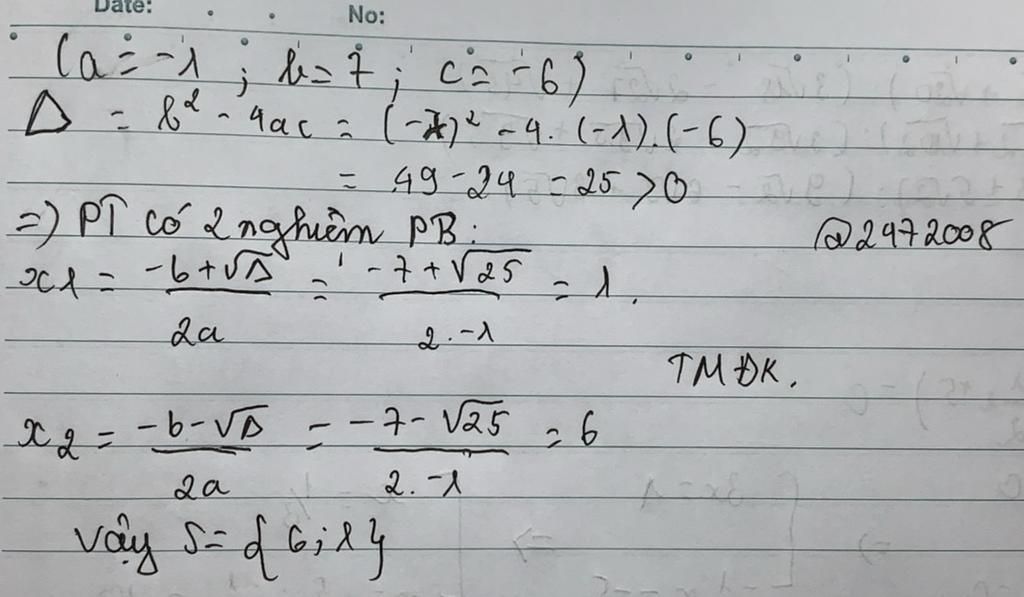 Date: No:
(a = -1 ; b = 7 ; c = -6)
Δ = b² - 4ac = (-7)² - 4. (-1).(-6)
= 49 - 24 = 25 > 0
=) PT có 2 nghiệm PB:
@2472008
x1 = (-b + √Δ)/2a = (-7 + √25)/2.-1 = 1.
TMĐK.
x2 = (-b - √Δ)/2a = (-7 - √25)/2.-1 = 6
Vậy S = { 6 ; 1 }